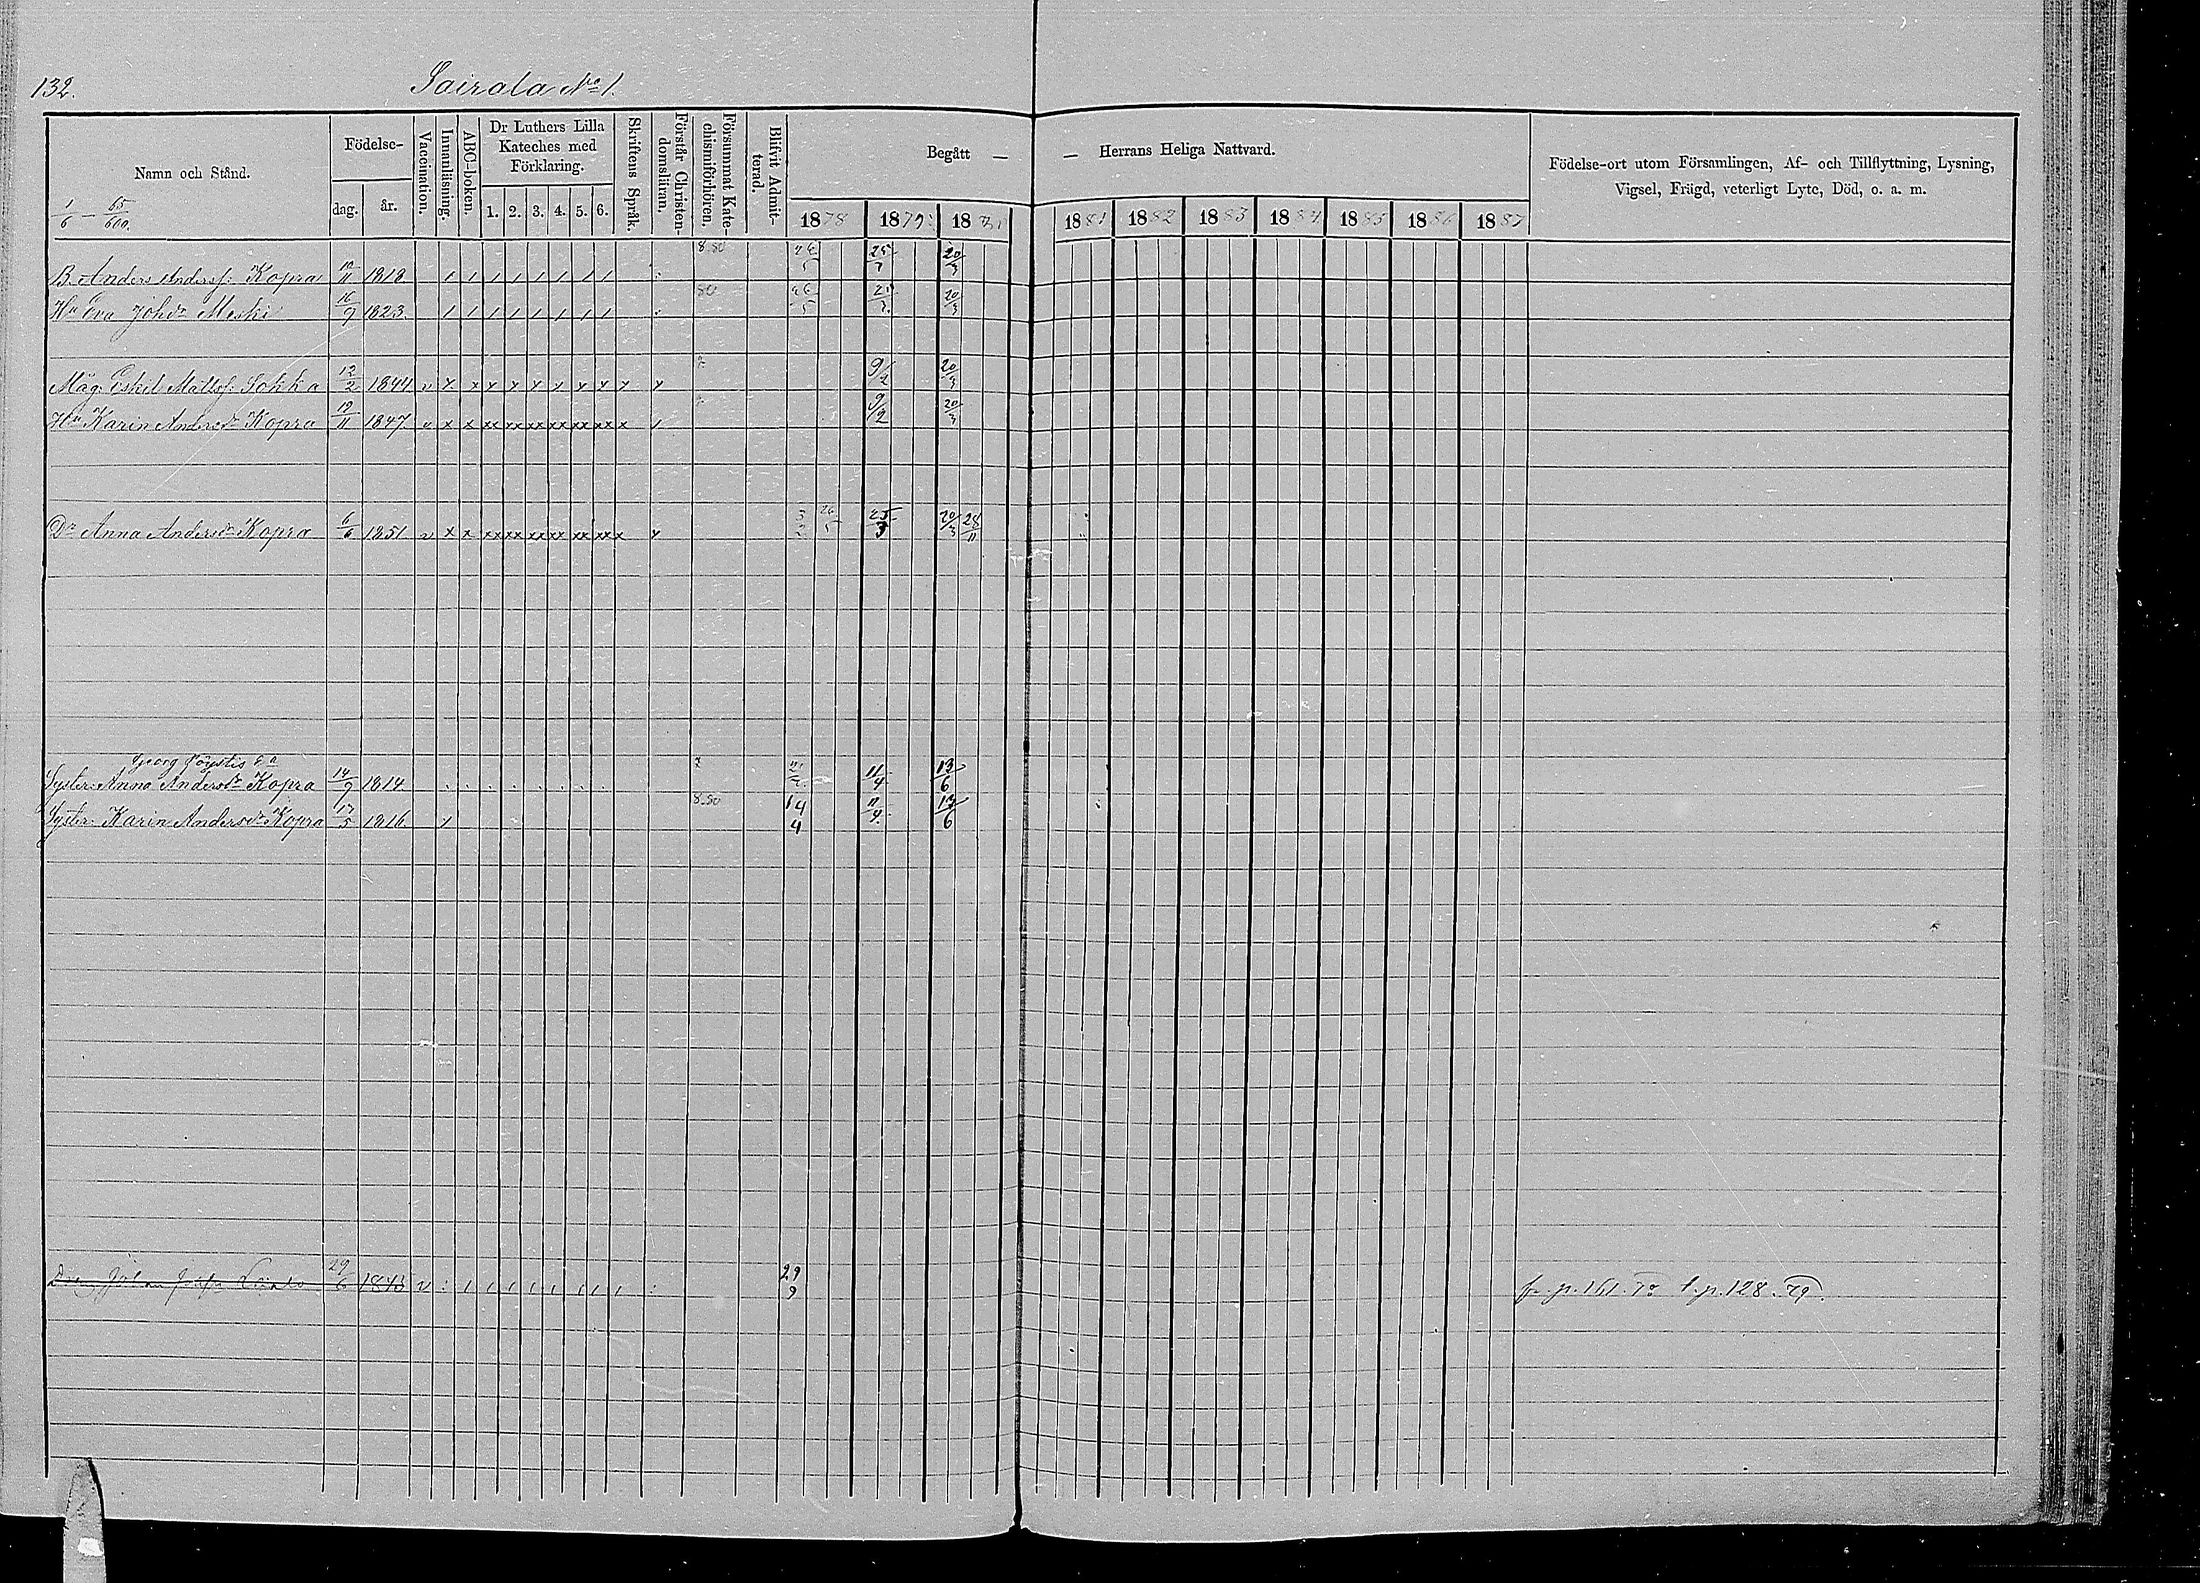 132.
Sairala No 1.
Namn och Stånd.
1/6 — 65/600.
Födelse-
dag.
år.
Vaccination.
Innanläsning.
ABC-boken.
Dr Luthers Lilla Kateches med Förklaring.
1. 2. 3. 4. 5. 6.
Skriftens Språk.
Förstår Christendomsläran.
Försummat Katechismiförhören.
Blifvit Admitterad.
Begått — — Herrans Heliga Nattvard.
1878 1879 1880 1881 1882 1883 1884 1885 1886 1887
Födelse-ort utom Församlingen, Af- och Tillflyttning, Lysning,
Vigsel, Frägd, veterligt Lyte, Död, o. a. m.
B. Anders Anderss. Kopra 1818 25/3 20/3
Hu Eva Johdr Meski 16/9 1823 25/3 20/3
Måg. Eskil Mattss. Tokka 12/2 1844 v x x x x x x x x x x 9/2 20/3
Hu Karin Andersdr Kopra 19/11 1847 v x x xx xx xx xx xx xx x 9/2 20/3
Dr Anna Andersdr Kopra 6/6 1851 v x x xx xx xx xx xx xx x 26/5 25/3 20/3 28/11
Georg
Syster: Anna Andersdr Kopra 14/9 1814 11/4 13/6
Syster: Karin Andersdr Kopra 17/5 1816 8.80 14/4 11/4 13/6
29/6 1843 v 29/9 fr. p. 161. 78 t. p. 128. 79.